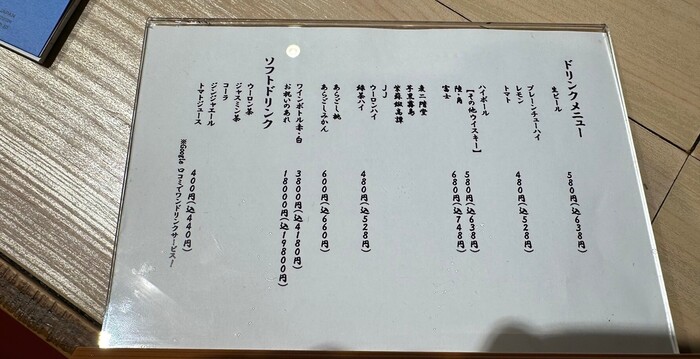 ドリンクメニュー
生ビール
580円(込638円)
プレーンチューハイ
レモン
480円(込528円)
トマト
ハイボール
580円(込638円)
【その他ウイスキー】
陸・角
富士
680円(込748円)
麦 二階堂
芋 黒霧島
紫蘇 鍛高譚
JJ
ウーロンハイ
480円(込528円)
緑茶ハイ
あらごし桃
600円(込660円)
あらごしみかん
ワインボトル赤・白
3800円(込4180円)
お祝いのあれ
18000円(込19800円)
ソフトドリンク
ウーロン茶
ジャスミン茶
コーラ
ジンジャエール
400円(込440円)
トマトジュース
※Google 口コミでワンドリンクサービス!